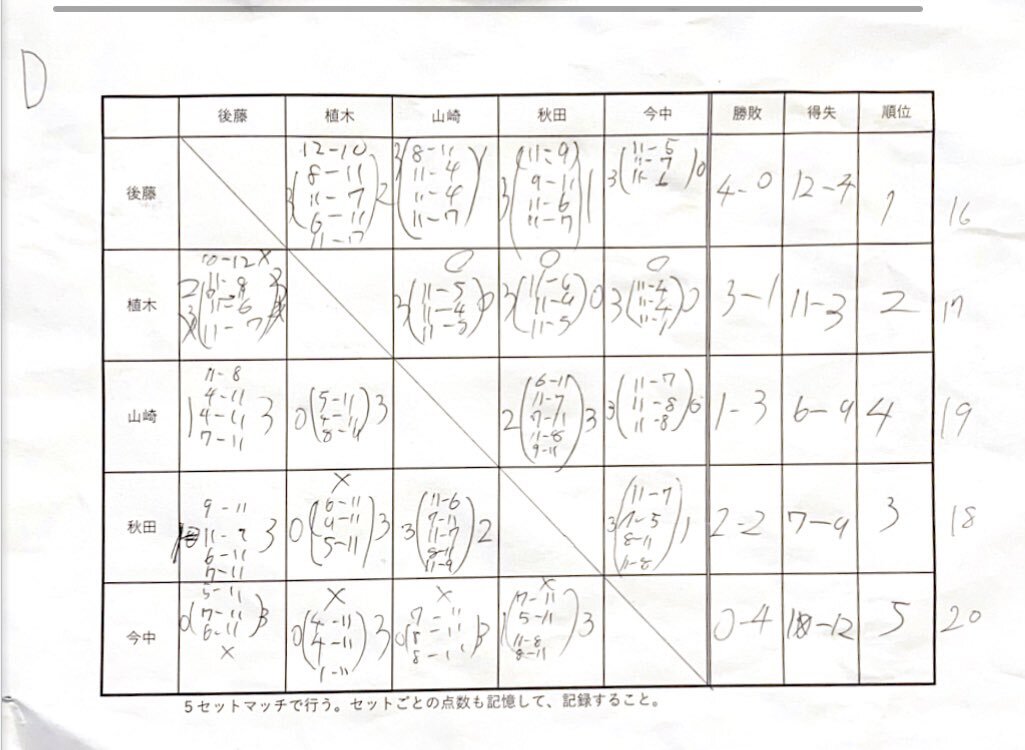 D
後藤 植木 山崎 秋田 今中 勝敗 得失 順位
後藤
12-10
8-11
11-7
6-11
3 2
3 8-11 1
11-4
11-4
11-7
11-9
9-11
11-6
11-7
3 1
11-5
11-7
11-6
3 0
4-0 12-4 1 16
植木
10-12 X
11-8
11-6
11-7
2 3
O
3 11-5 0
11-4
11-5
O
3 11-6 0
11-4
11-5
O
3 11-4 0
11-4
11-1
3-1 11-3 2 17
山崎
11-8
4-11
1 4-11 3
7-11
5-11
0 4-11 3
8-11
6-11
11-7
2 7-11 3
11-8
9-11
11-7
3 11-8 0
11-8
1-3 6-9 4 19
秋田
9-11
11-9 3
6-11
7-11
X
6-11
0 4-11 3
5-11
11-6
7-11
3 11-7 2
8-11
11-9
11-7
3 1
8-11
11-8
2-2 7-9 3 18
今中
5-11
0 7-11 3
6-11
X
X
4-11
0 4-11 3
1-11
X
7-11
0 8-11 3
8-11
X
7-11
1 5-11 3
11-8
8-11
0-4 1-12 5 20
5セットマッチで行う。セットごとの点数も記憶して、記録すること。